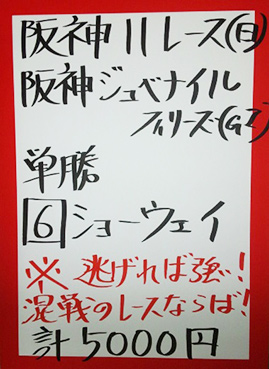 阪神11レース(日)
阪神ジュベナイル
フィリーズ(GI)
単勝
6 ショーウェイ
※ 逃げれば強い!
混戦のレースならば!
計5000円